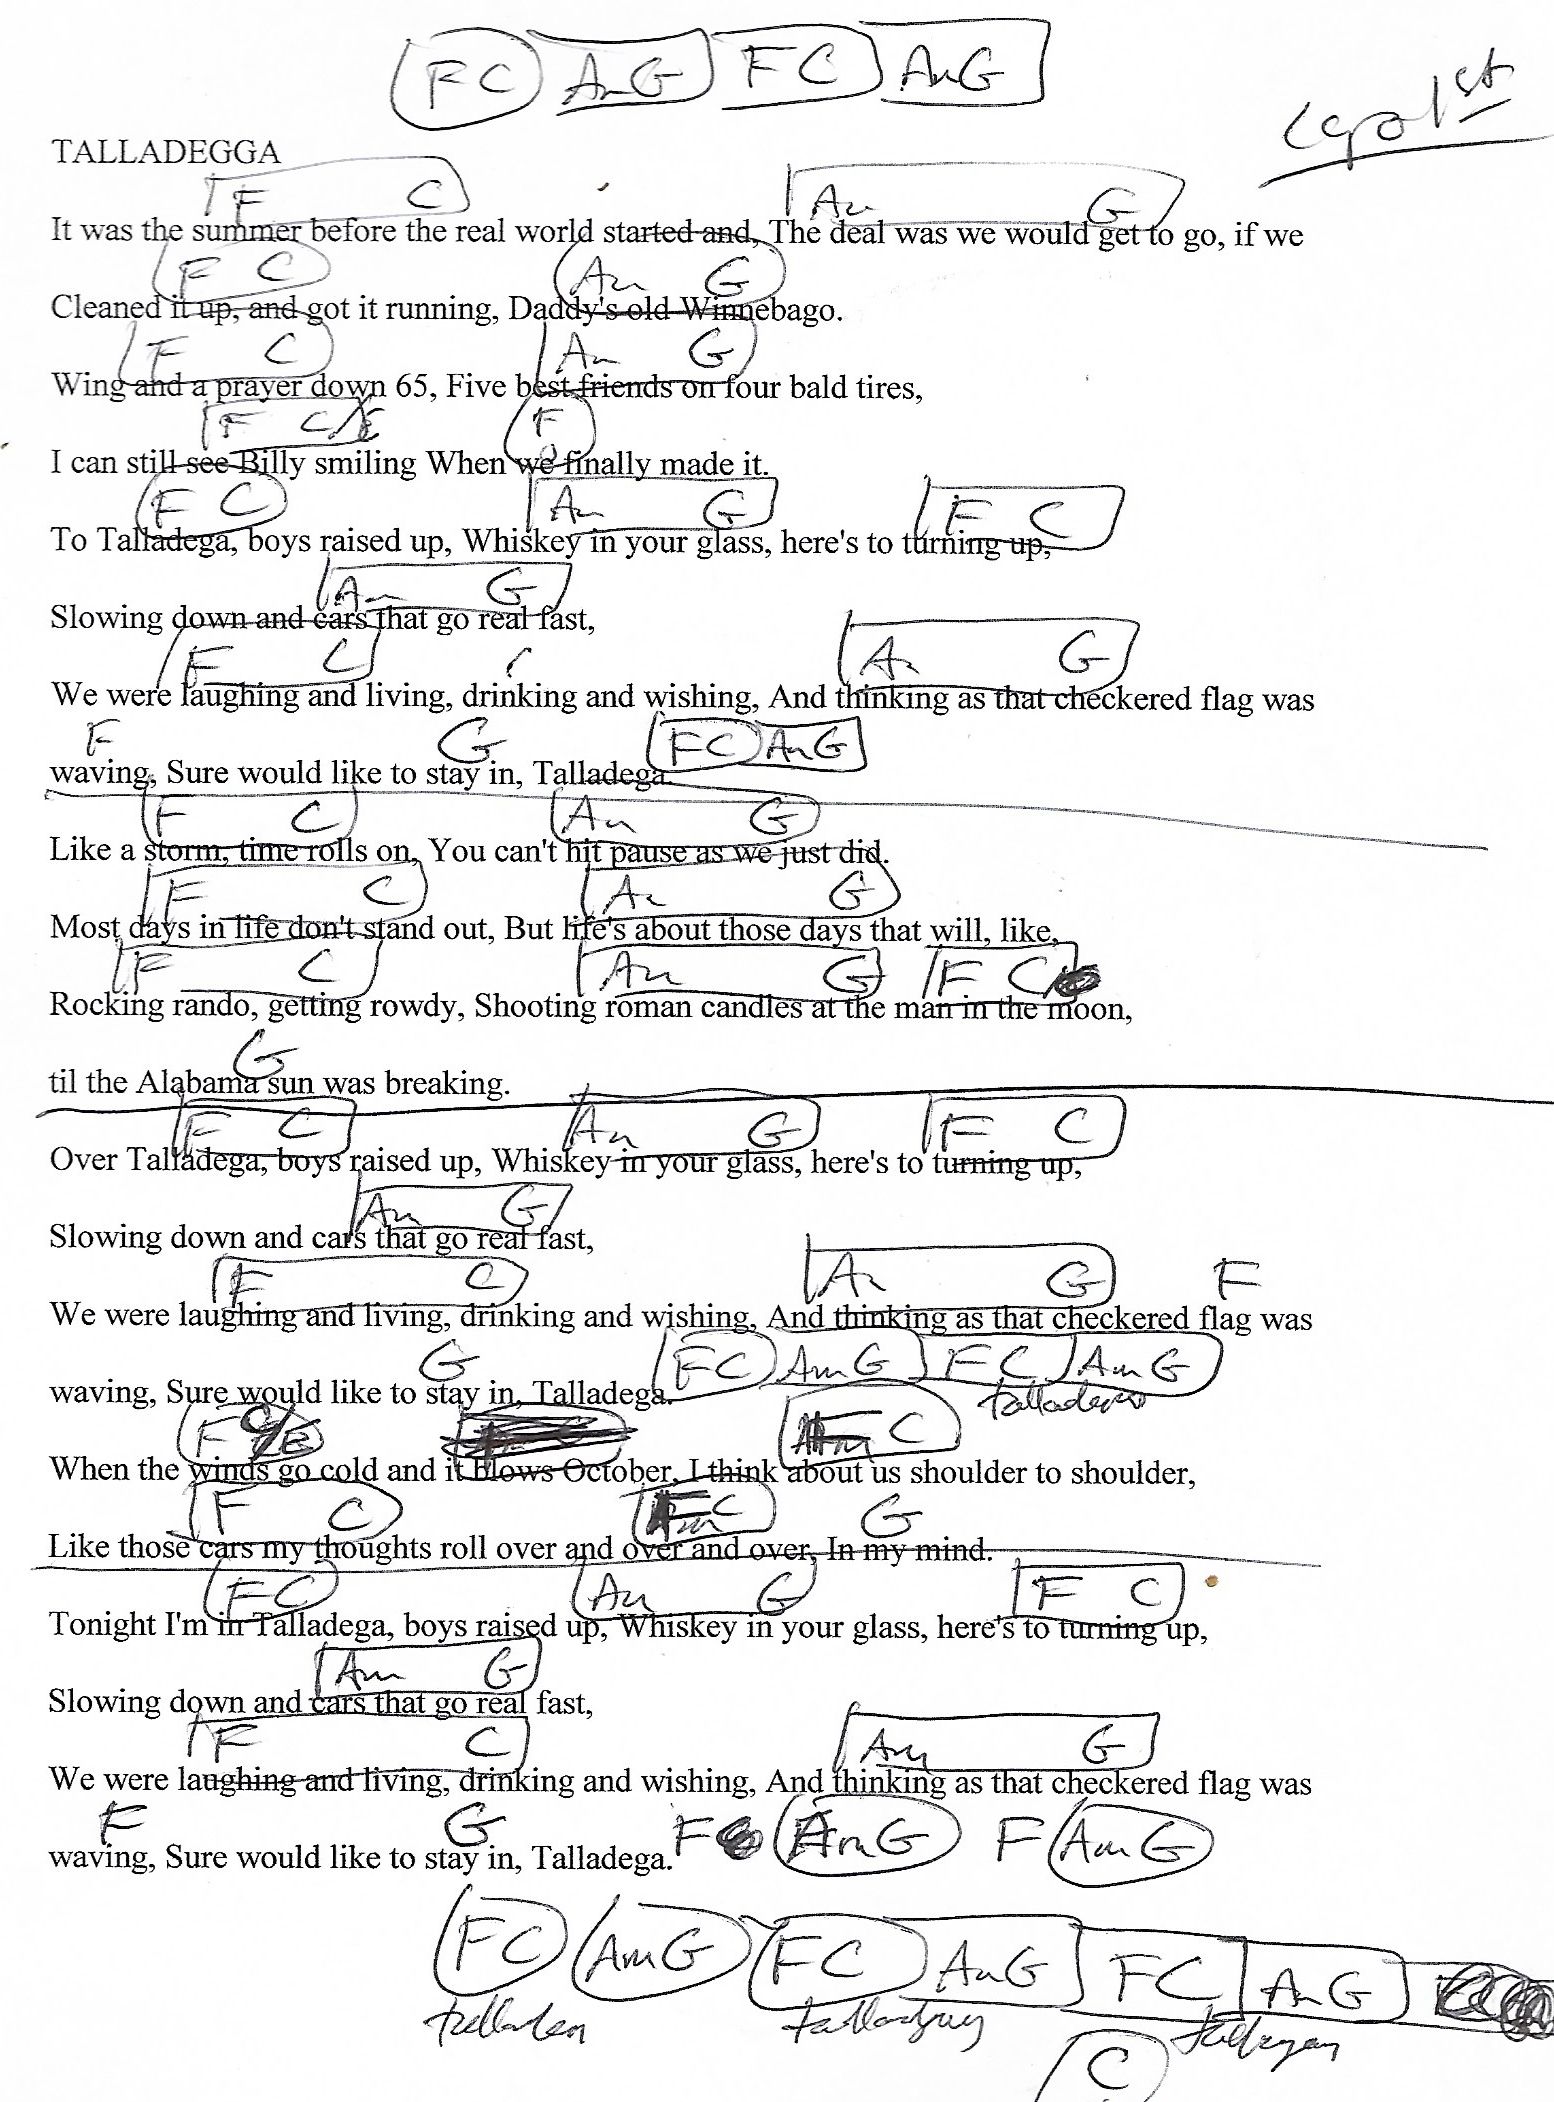 F C Am G F C Am G
capo 1st
TALLADEGGA
F C Am G
It was the summer before the real world started and, The deal was we would get to go, if we
F C Am G
Cleaned it up, and got it running, Daddy's old Winnebago.
F C Am G
Wing and a prayer down 65, Five best friends on four bald tires,
F C/E F
I can still see Billy smiling When we finally made it.
F C Am G F C
To Talladega, boys raised up, Whiskey in your glass, here's to turning up,
Am G
Slowing down and cars that go real fast,
F C Am G
We were laughing and living, drinking and wishing, And thinking as that checkered flag was
F G F C Am G
waving, Sure would like to stay in, Talladega.
F C Am G
Like a storm, time rolls on, You can't hit pause as we just did.
F C Am G
Most days in life don't stand out, But life's about those days that will, like,
F C Am G F C
Rocking rando, getting rowdy, Shooting roman candles at the man in the moon,
G
til the Alabama sun was breaking.
F C Am G F C
Over Talladega, boys raised up, Whiskey in your glass, here's to turning up,
Am G
Slowing down and cars that go real fast,
F C Am G F
We were laughing and living, drinking and wishing, And thinking as that checkered flag was
G F C Am G F C Am G
waving, Sure would like to stay in, Talladega. talladega
F C/E F C
When the winds go cold and it blows October, I think about us shoulder to shoulder,
F C F C G
Like those cars my thoughts roll over and over and over, In my mind.
F C Am G F C
Tonight I'm in Talladega, boys raised up, Whiskey in your glass, here's to turning up,
Am G
Slowing down and cars that go real fast,
F C Am G
We were laughing and living, drinking and wishing, And thinking as that checkered flag was
F G F Am G F Am G
waving, Sure would like to stay in, Talladega.
F C Am G F C Am G F C Am G
C